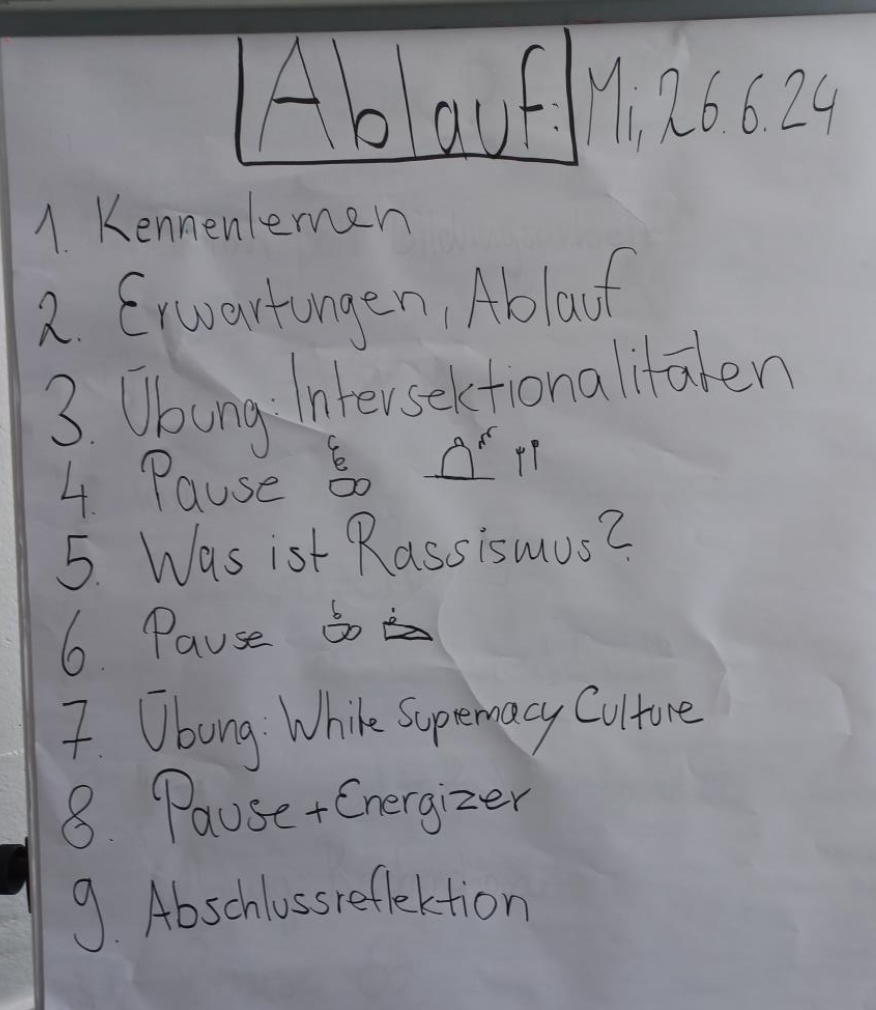 Ablauf: Mi, 26.6.24
1. Kennenlernen
2. Erwartungen, Ablauf
3. Übung: Intersektionalitäten
4. Pause
5. Was ist Rassismus?
6. Pause
7. Übung: White Supremacy Culture
8. Pause + Energizer
9. Abschlussreflektion